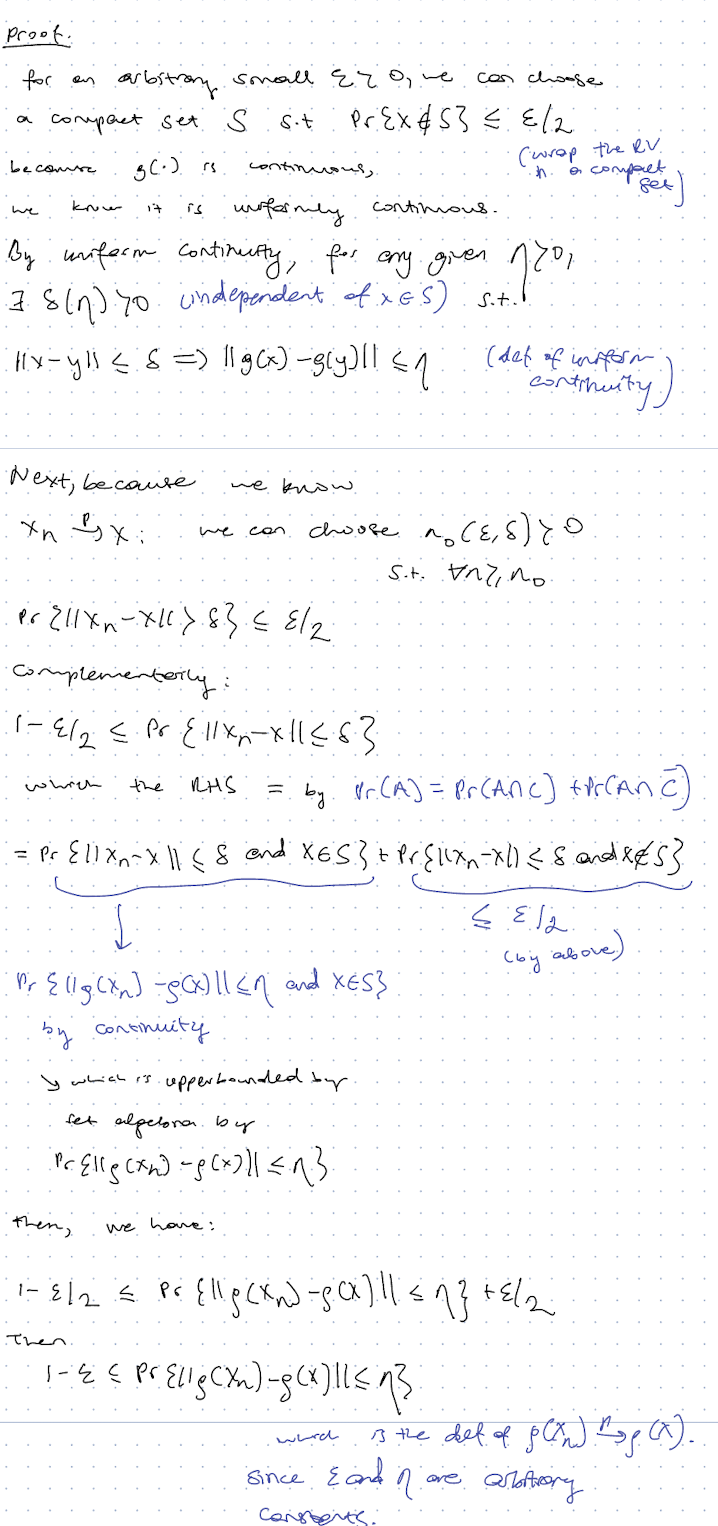 Proof.
for an arbitrary small ε > 0, we can choose
a compact set S s.t Pr{X ∉ S} ≤ ε/2
(wrap the RV
in a compact
set)
because g(·) is continuous,
we know it is uniformly continuous.
By uniform continuity, for any given η > 0,
∃ δ(η) > 0 (independent of x ∈ S) s.t.
||x - y|| ≤ δ => ||g(x) - g(y)|| ≤ η
(def of uniform
continuity)
Next, because we know
Xn →p X; we can choose n₀(ε, δ) > 0
s.t. ∀n ≥ n₀
Pr{||Xn - X|| > δ} ≤ ε/2
complementerily:
1 - ε/2 ≤ Pr{||Xn - X|| ≤ δ}
which the RHS = by Pr(A) = Pr(A∩C) + Pr(A∩C̄)
= Pr{||Xn - X|| ≤ δ and X∈S} + Pr{||Xn - X|| ≤ δ and X∉S}
↓ ≤ ε/2
(by above)
Pr{||g(Xn) - g(X)|| ≤ η and X∈S}
by continuity
↘ which is upperbounded by
set algebra by
Pr{||g(Xn) - g(X)|| ≤ η}
then, we have:
1 - ε/2 ≤ Pr{||g(Xn) - g(X)|| ≤ η} + ε/2
Then
1 - ε ≤ Pr{||g(Xn) - g(X)|| ≤ η}
which is the def of g(Xn) →p g(X).
since ε and η are arbitrary
constents.